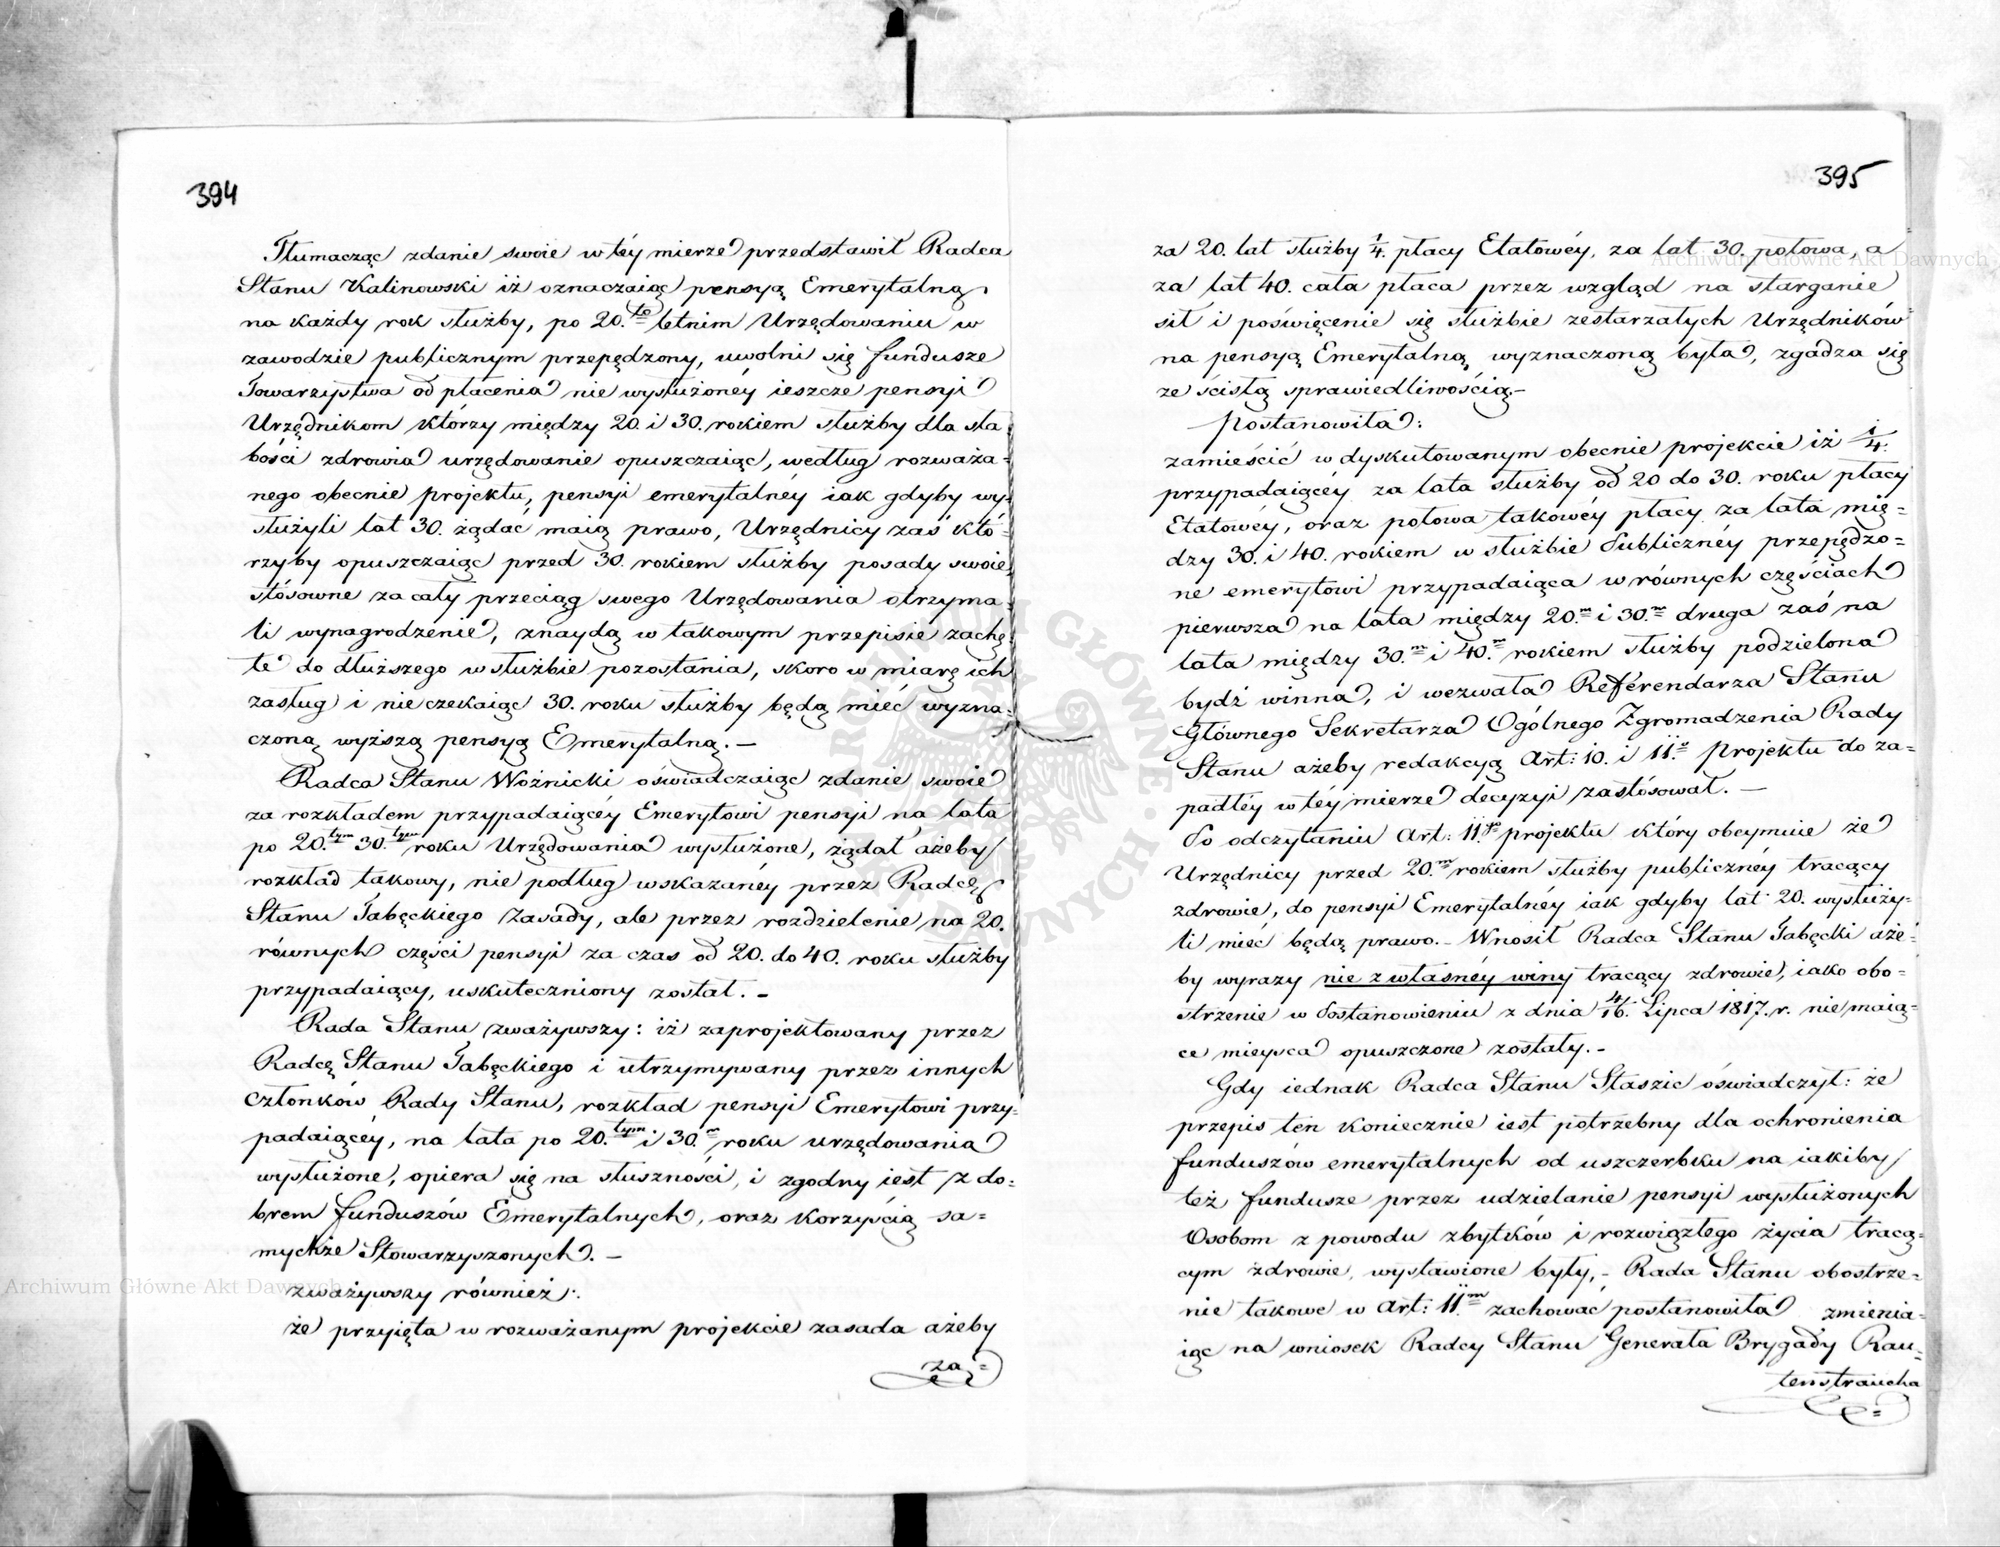 394
Tłumacząc zdanie swoie w téy mierze przedstawił Radca
Stanu Kalinowski iż oznaczaiąc pensyą Emerytalną
na każdy rok służby, po 20.to letnim Urzędowaniu w
zawodzie publicznym przepędzony, uwolni się fundusze
Towarzystwa od płacenia nie wysłużonéy ieszcze pensyi
Urzędnikom którzy między 20. i 30. rokiem służby dla sła-
bości zdrowia urzędowanie opuszczaiąc, według rozważa-
nego obecnie projektu, pensyi emerytalnéy iak gdyby wy-
służyli lat 30. żądać maią prawo, Urzędnicy zaś któ-
rzyby opuszczaiąc przed 30. rokiem służby posady swoie
stósowne za cały przeciąg swego Urzędowania otrzyma-
li wynagrodzenie, znaydą w takowym przepisie zachę-
tę do dłuższego w służbie pozostania, skoro w miarę ich
zasług i nie czekaiąc 30. roku służby będą mieć wyzna-
czoną wyższą pensyą Emerytalną. —
Radca Stanu Woźnicki oświadczaiąc zdanie swoie
za rozkładem przypadaiącéy Emerytowi pensyi na lata
po 20.tym 30.tym roku Urzędowania wysłużone, żądał ażeby
rozkład takowy, nie podług wskazanéy przez Radcę
Stanu Tabęckiego zasady, ale przez rozdzielenie na 20.
równych części pensyi za czas od 20. do 40. roku służby
przypadaiący, uskuteczniony został. —
Rada Stanu zważywszy: iż zaprojektowany przez
Radcę Stanu Tabęckiego i utrzymywany przez innych
Członków Rady Stanu, rozkład pensyi Emerytowi przy-
padaiącéy, na lata po 20.tym i 30.m roku urzędowania
wysłużone, opiera się na słuszności, i zgodny iest z do-
brem funduszów Emerytalnych, oraz korzyścią sa-
mychże Stowarzyszonych. —
zważywszy również:
że przyięta w rozważanym projekcie zasada ażeby
za
395
za 20. lat służby 1/4. płacy Etatowéy, za lat 30. połowa, a
za lat 40. cała płaca przez wzgląd na starganie
sił i poświęcenie się służbie zestarzałych Urzędników
na pensyą Emerytalną wyznaczoną była, zgadza się
ze ścisłą sprawiedliwością —
Postanowiła:
zamieścić w dyskutowanym obecnie projekcie iż 1/4.
przypadaiącéy za lata służby od 20 do 30. roku płacy
Etatowéy, oraz połowa takowéy płacy za lata mię-
dzy 30. i 40. rokiem w służbie Publicznéy przepędzo-
ne emerytowi przypadaiąca w równych częściach
pierwsza na lata między 20.m i 30.m druga zaś na
lata między 30.m i 40.m rokiem służby podzielona
bydź winna, i wezwała Referendarza Stanu
Głównego Sekretarza Ogólnego Zgromadzenia Rady
Stanu ażeby redakcyą Art: 10. i 11.o Projektu do za-
padłéy w téy mierze decyzyi zastósował. —
Po odczytaniu Art: 11.go projektu który obeymuie że
Urzędnicy przed 20.m rokiem służby publicznéy tracący
zdrowie, do pensyi Emerytalnéy iak gdyby lat 20. wysłuży-
li mieć będą prawo. — Wnosił Radca Stanu Tabęcki aże-
by wyrazy nie z własnéy winy tracący zdrowie, iako obo-
strzenie w Postanowieniu z dnia 4/16. Lipca 1817. r. nie maią-
ce mieysca opuszczone zostały. —
Gdy iednak Radca Stanu Staszic oświadczył: że
przepis ten koniecznie iest potrzebny dla ochronienia
funduszów emerytalnych od uszczerbku na iakiby
też fundusze przez udzielanie pensyi wysłużonych
Osobom z powodu zbytków i rozwiązłego życia tracą-
cym zdrowie, wystawione były, — Rada Stanu obostrze-
nie takowe w Art: 11.m zachować postanowiła zmienia-
iąc na wniosek Radcy Stanu Generała Brygady Rau-
tenstraucha
Archiwum Główne Akt Dawnych
Archiwum Główne Akt Dawnych